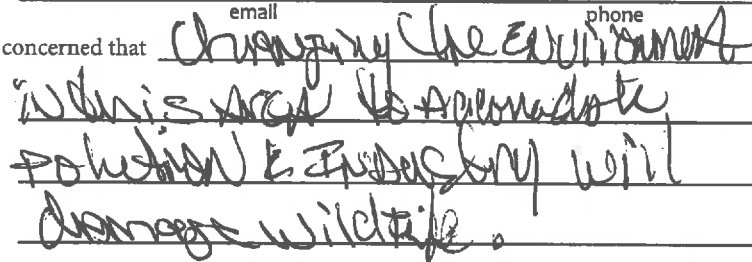 email phone
concerned that changing the Environment
in this area to accomadate
polution & Industry will
damage wildlife.